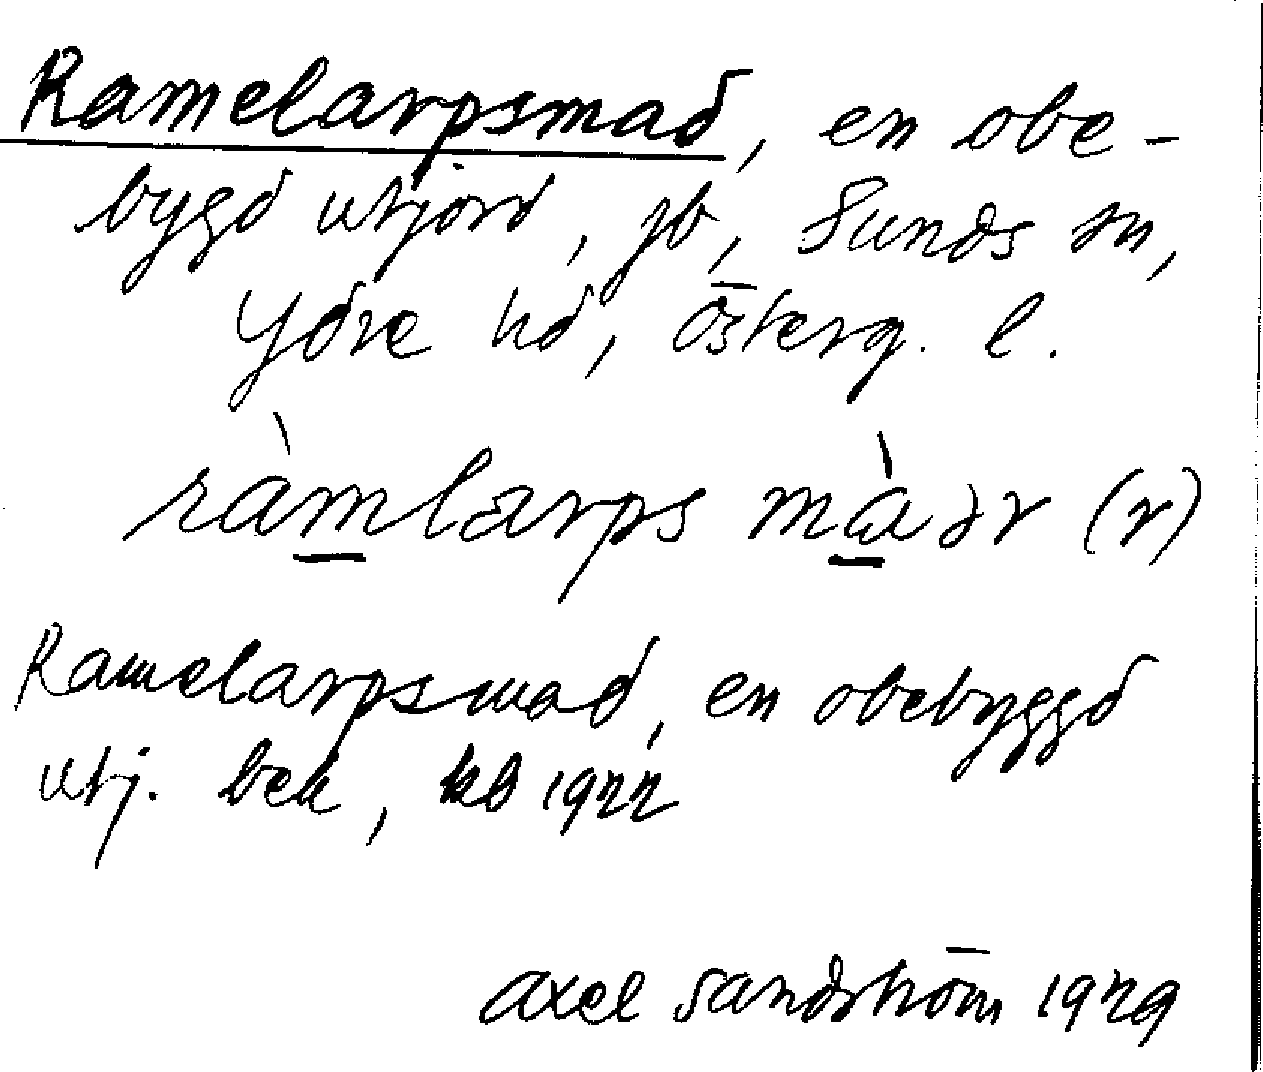 Ramelarpsmad, en obe-
bygd utjord, jb, Sunds sn,
Ydre hd, Österg. l.
ràmlarps màdr (r)
Ramelarpsmad, en obebyggd
utj. bek, kb 1922
Axel Sandström 1929